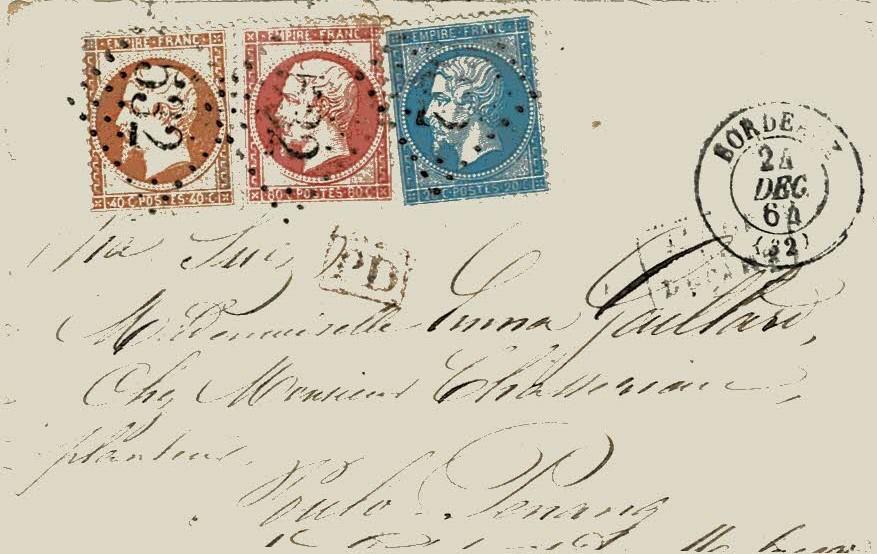 EMPIRE · FRANC · EMPIRE · FRANC · EMPIRE · FRANC ·
532
40·C·POSTES·40·C 80·C·POSTES·80·C 20·C·POSTES·20·C
BORDEAUX
24
DEC.
64
(32)
PD
Via Suez
Mademoiselle Emma Gaillard,
Chez Monsieur Chasseriau,
planteur,
Poulo-Penang